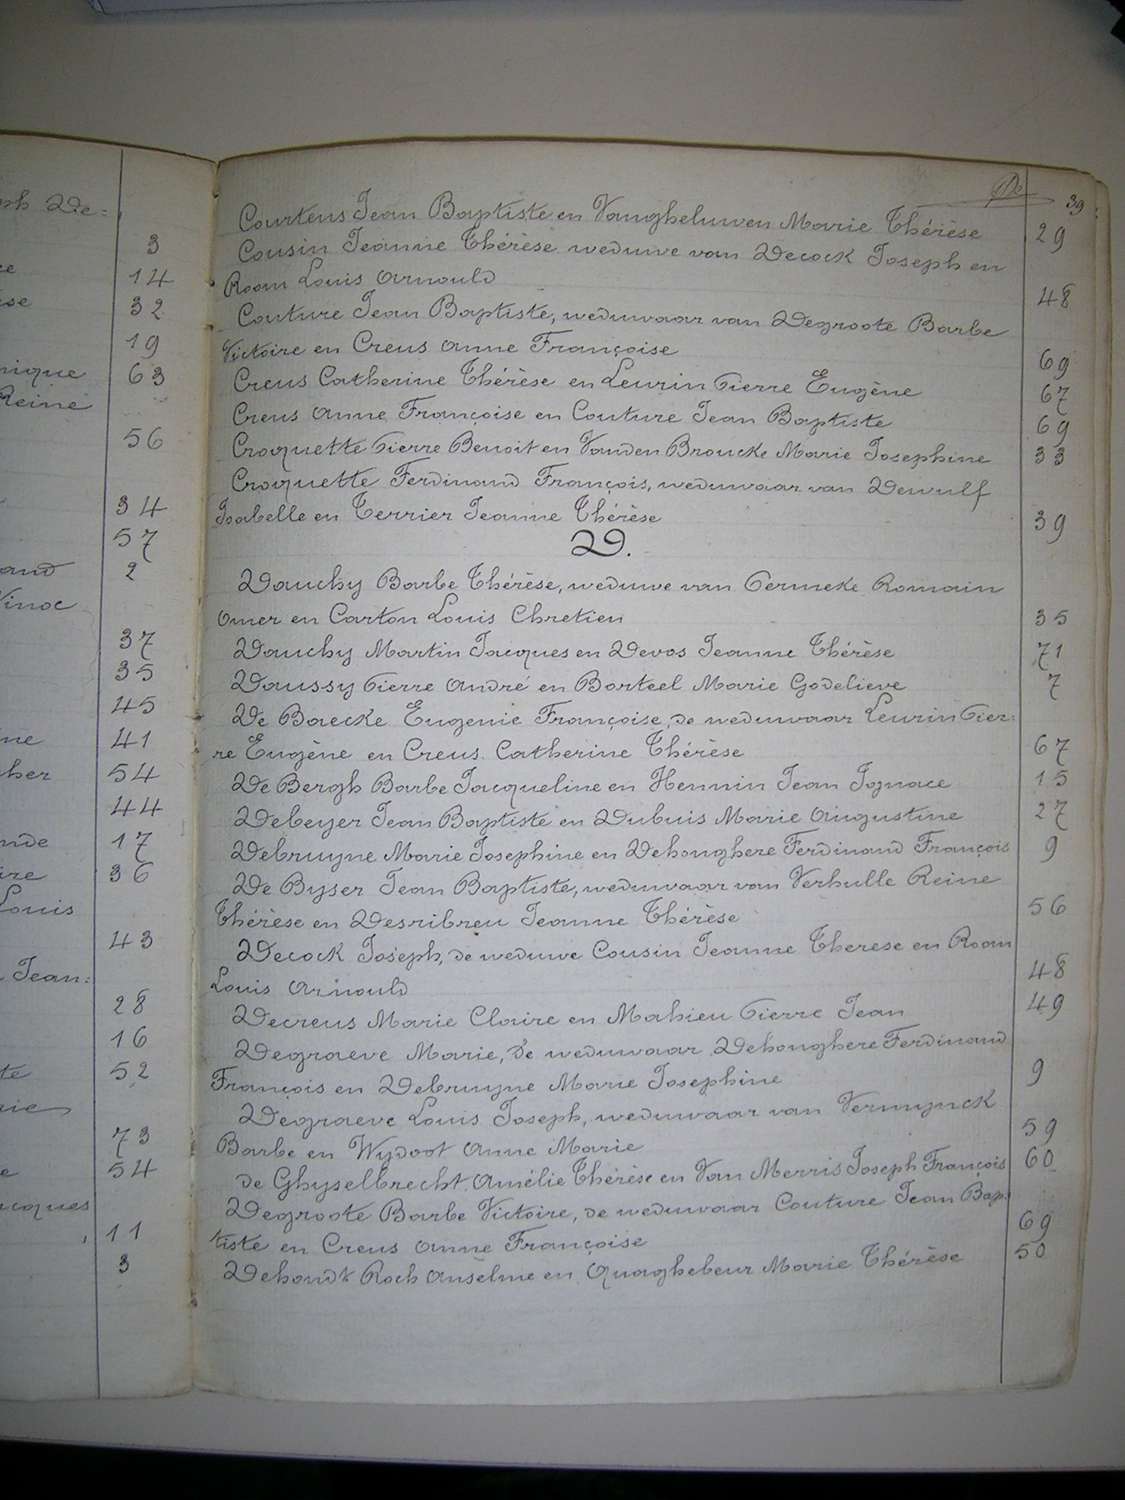 ph De=
3
14
32
19
nique 63
Reine
56
34
57
and 2
Vinoc
37
35
45
ne 41
her 54
44
nde 17
ire 36
Louis
43
Jean=
28
16
te 52
rie
73
e 54
acques
11
3
De 39
Courtens Jean Baptiste en Vangheluwen Marie Thérèse 29
Cousin Jeanne Thérèse weduwe van Decock Joseph en
Room Louis Arnould 48
Couture Jean Baptiste, weduwaar van Degroote Barbe
Victoire en Creus Anne Françoise 69
Creus Catherine Thérèse en Leurin Pierre Eugène 67
Creus Anne Françoise en Couture Jean Baptiste 69
Croquette Pierre Benoit en Vanden Broucke Marie Josephine 33
Croquette Ferdinand François, weduwaar van Dewulf
Isabelle en Terrier Jeanne Thérèse 39
D.
Dauchy Barbe Thérèse, weduwe van Permeke Romain
Omer en Carton Louis Chretien 35
Dauchy Martin Jacques en Devos Jeanne Thérèse 71
Daussy Pierre André en Barteel Marie Godelieve 7
De Baecke Eugenie Françoise, de weduwaar Leurin Pier=
re Eugène en Creus Catherine Thérèse 67
De Bergh Barbe Jacqueline en Hennin Jean Ignace 15
Debeyer Jean Baptiste en Dubuis Marie Augustine 27
Debruyne Marie Josephine en Dehonghere Ferdinand François 9
De Byser Jean Baptiste, weduwaar van Verhulle Reine
Thérèse en Desribreu Jeanne Thérèse 56
Decock Joseph, de weduwe Cousin Jeanne Therese en Room
Louis Arnould 48
Decreus Marie Claire en Mahieu Pierre Jean 49
Degraeve Marie, de weduwaar Dehonghere Ferdinand
François en Debruyne Marie Josephine 9
Degraeve Louis Joseph, weduwaar van Vermynck
Barbe en Wydoot Anne Marie 59
de Ghyselbrecht Amélie Thérèse en Van Merris Joseph François 60
Degroote Barbe Victoire, de weduwaar Couture Jean Bap=
tiste en Creus Anne Françoise 69
Dehondt Roch Anselme en Quaghebeur Marie Thérèse 50